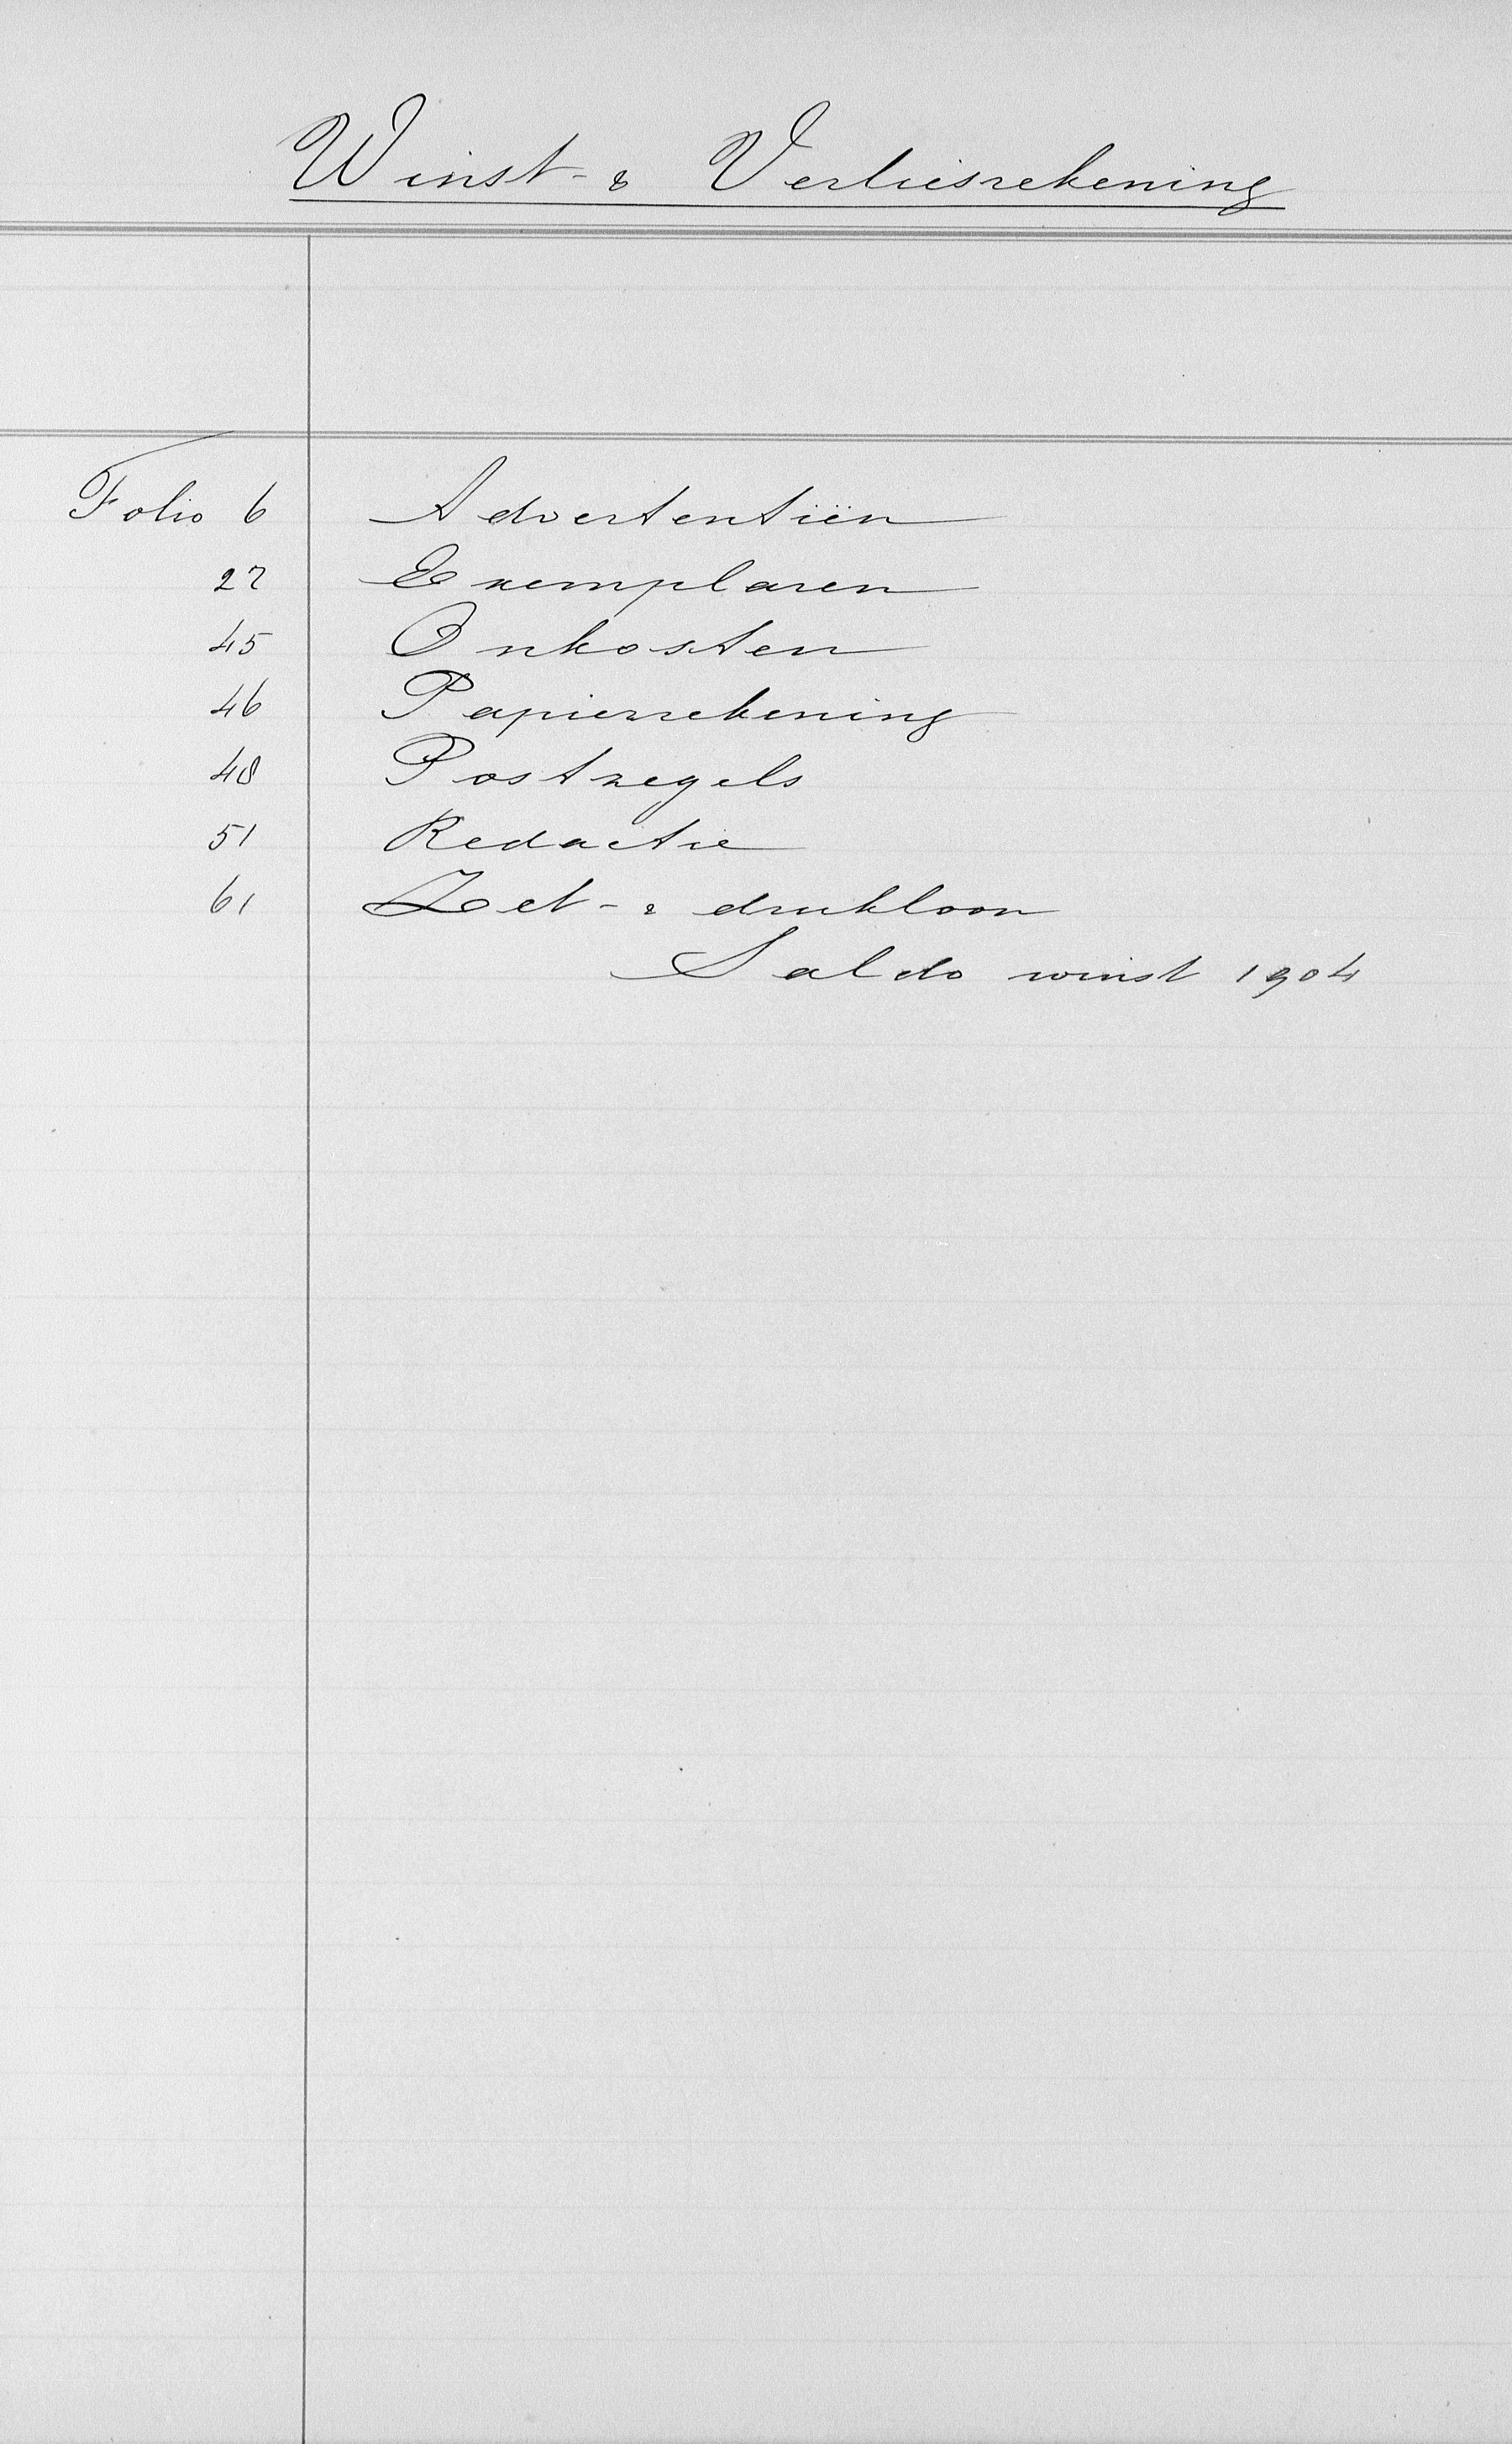 Winst- & Verliesrekening
Folio 6 Advertentiën
27 Exemplaren
45 Onkosten
46 Papierrekening
48 Postzegels
51 Redactie
61 Zet- & drukloon
Saldo winst 1904